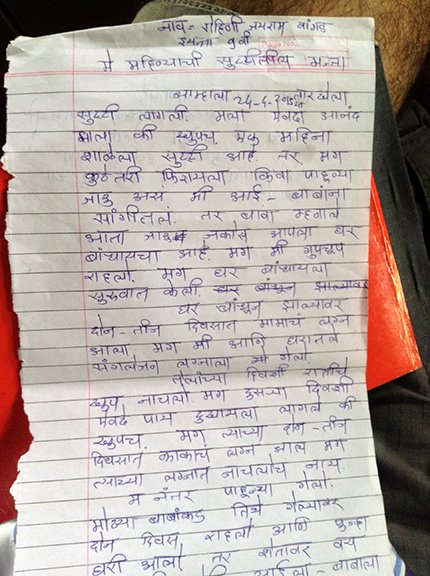 नाव = रोहिणी जयराम वांगड
इयत्ता ७ वी
मे महिन्याची सुट्टीतील मज्जा
आम्हाला 24-4-2015 तारखेला
सुट्टी लागली. मला एवढा आनंद
झाला की खुपच. एक महिना
शाळेला सुट्टी आहे. तर मग
कुठंतरी फिरायला किंवा पाहूण्या
जाऊ असं मी आई-बाबांना
सांगीतलं. तर बाबा म्हणाले
आता जाऊ नकोस आपला घर
बांधायचा आहे. मग मी गुपचूप
राहलो. मग घर बांधायला
सुरुवात केली घर बांधून झाल्यावर
घर बांधून झाल्यावर
दोन-तीन दिवसात मामाचं लग्न
आला मग मी आणि घरातले
संगलेजन लग्नाला गेलो.
दिवशी रातीचे
खुप नाचलो मग दुसऱ्या दिवशी
एवढे पाय दुखायला लागले की
खुपच. मग त्याच्या दोन-तीन
दिवसात काकाचं लग्न आलं मग
त्याच्या लग्नात नाचलोच नाय.
म नंतर पाहूण्या गेलो.
मोठ्या बाबांकड तिथे गेल्यावर
दोन दिवस राहलो आणि पुन्हा
घरी आलो तर शेतावर
बाबाला